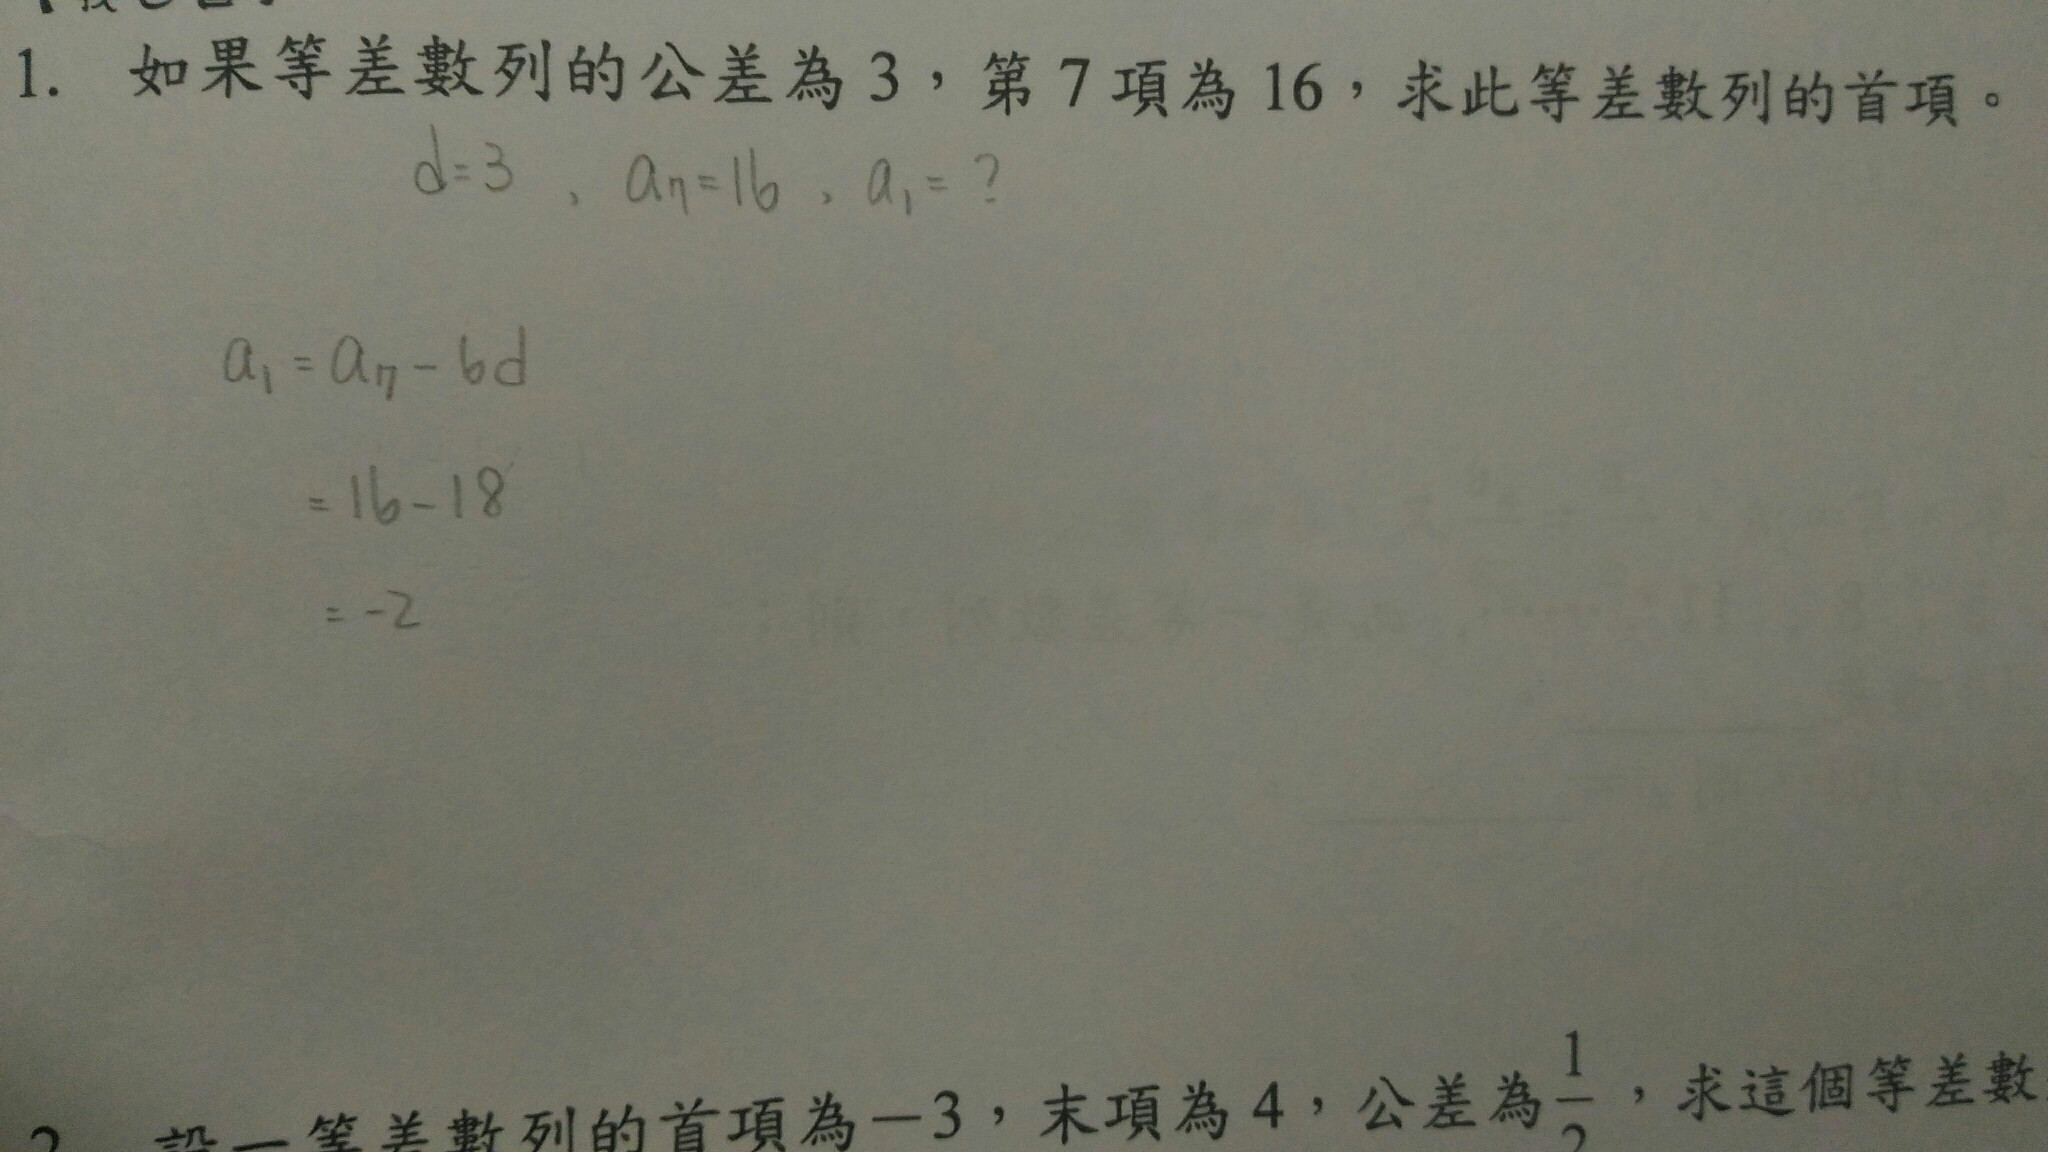 1. 如果等差數列的公差為 3，第 7 項為 16，求此等差數列的首項。
d=3、a₇=16、a₁=?
a₁=a₇-6d
=16-18
=-2
2. 設一等差數列的首項為-3，末項為 4，公差為1/2，求這個等差數